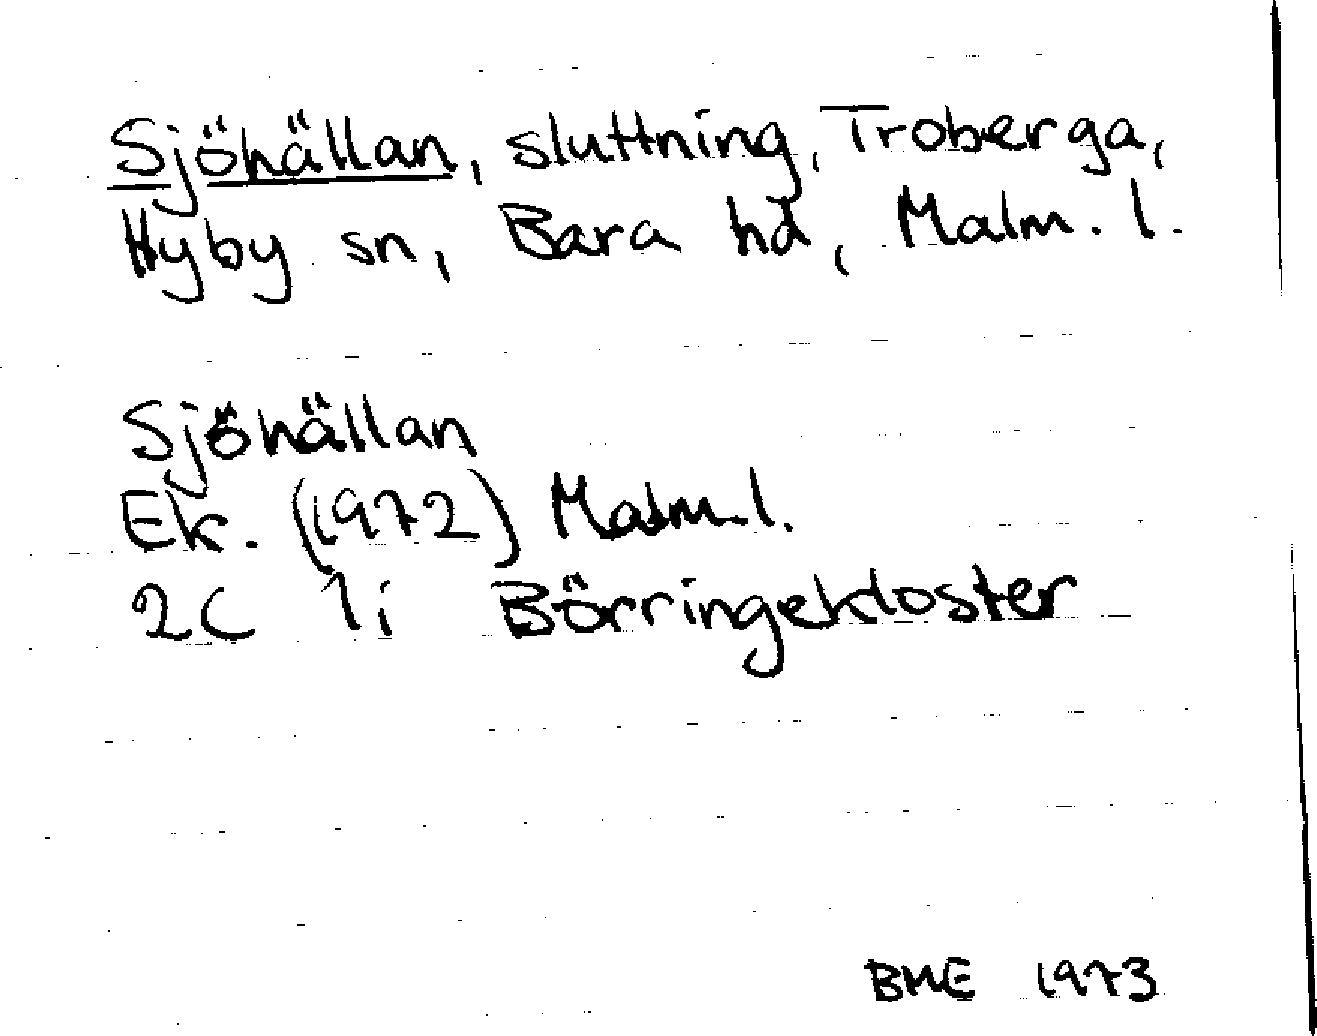 Sjöhällan, sluttning, Troberga,
Hyby sn, Bara hd, Malm. l.
Sjöhällan
Ek. (1972) Malm. l.
2C 1i Börringekloster
BME 1973